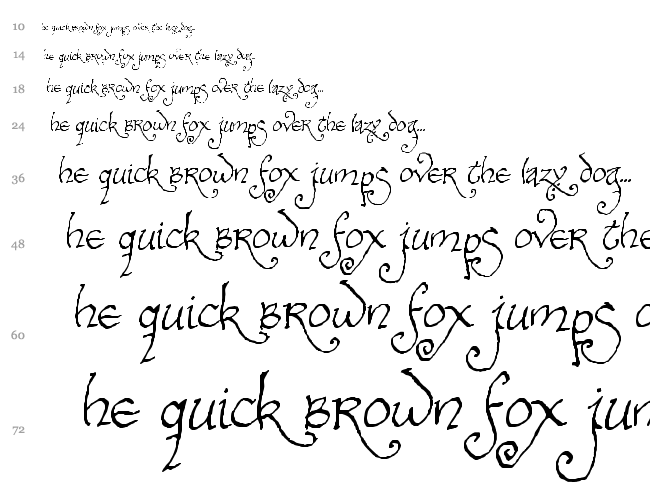 10 he quick brown fox jumps over the lazy dog...
14 he quick brown fox jumps over the lazy dog...
18 he quick brown fox jumps over the lazy dog...
24 he quick brown fox jumps over the lazy dog...
36 he quick brown fox jumps over the lazy dog...
48 he quick brown fox jumps over the
60 he quick brown fox jumps o
72 he quick brown fox jum